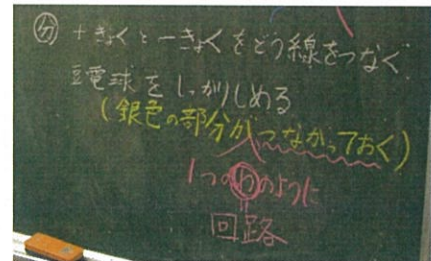 分 +きょくと-きょくをどう線をつなぐ
豆電球をしっかりしめる
(銀色の部分がつながっておく)
1つのわのように
回路